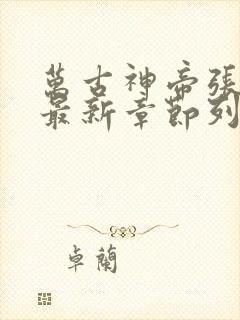 萬古神帝張
最新章節列
卓蘭